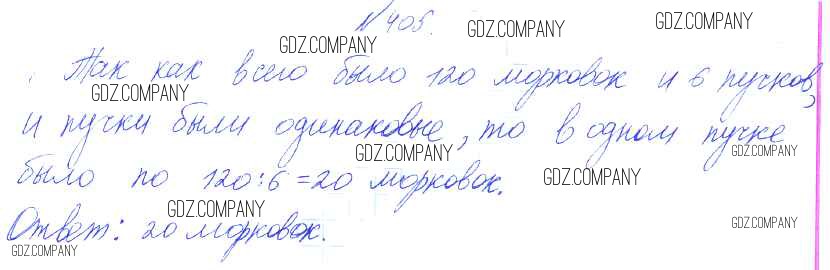 №405.
Так как всего было 120 морковок и 6 пучков,
и пучки были одинаковые, то в одном пучке
было по 120:6=20 морковок.
Ответ: 20 морковок.
GDZ.COMPANY
GDZ.COMPANY
GDZ.COMPANY
GDZ.COMPANY
GDZ.COMPANY
GDZ.COMPANY
GDZ.COMPANY
GDZ.COMPANY
GDZ.COMPANY
GDZ.COMPANY